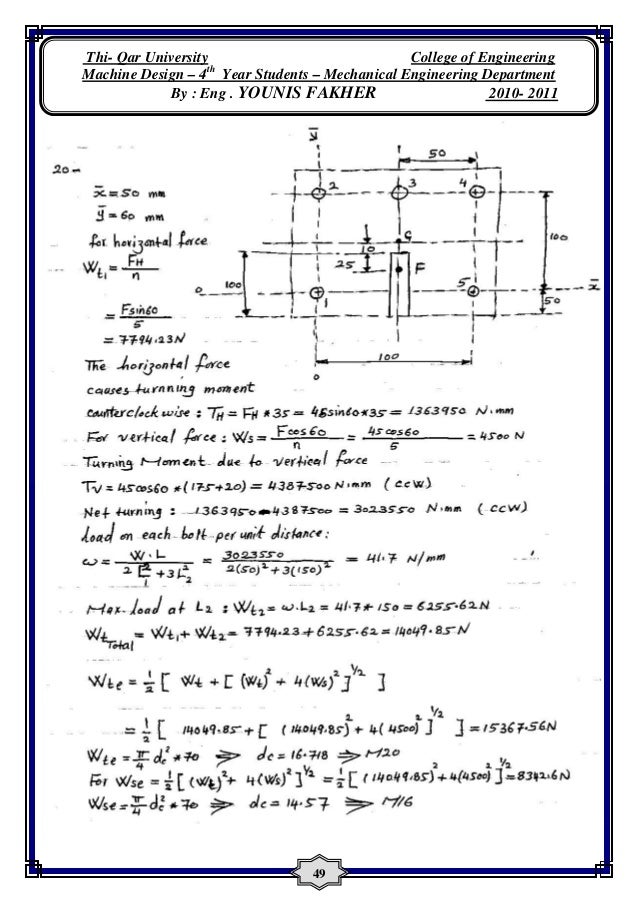 Thi- Qar University College of Engineering
Machine Design – 4th Year Students – Mechanical Engineering Department
By : Eng . YOUNIS FAKHER 2010- 2011
20-
x̄ = 50 mm
ȳ = 60 mm
for horizontal force
Wt₁ = FH/n
= F sin60/5
= 7794.23N
ȳ
50
2 3 4
G
10
25 F
100
100
50
o 1 5 x̄
100
o
The horizontal force
causes turnning moment
Counterclockwise : TH = FH * 35 = 45sin60*35 = 1363950 N.mm
For vertical force : Ws = Fcos60/n = 45cos60/5 = 4500 N
Turning Moment due to vertical force
Tv = 45cos60 * (175+20) = 4387500 N.mm (ccw)
Net turning : 1363950 - 4387500 = 3023550 N.mm (ccw)
load on each bolt per unit distance :
ω = W.L/(2L₁²+3L₂²) = 3023550/(2(50)²+3(150)²) = 41.7 N/mm
Max. load at L₂ : Wt₂ = ω.L₂ = 41.7 * 150 = 6255.62N
Wt Total = Wt₁ + Wt₂ = 7794.23 + 6255.62 = 14049.85 N
Wte = ½ [ Wt + [ (Wt)² + 4(Ws)² ]^1/2 ]
= ½ [ 14049.85 + [ (14049.85)² + 4(4500)² ]^1/2 ] = 15367.56N
Wte = π/4 dc² * 70 ⇒ dc = 16.718 ⇒ M20
For Wse = ½ [ (Wt)² + 4(Ws)² ]^1/2 = ½ [ (14049.85)² + 4(4500)² ]^1/2 = 8342.6N
Wse = π/4 dc² * 70 ⇒ dc = 14.57 ⇒ M16
49